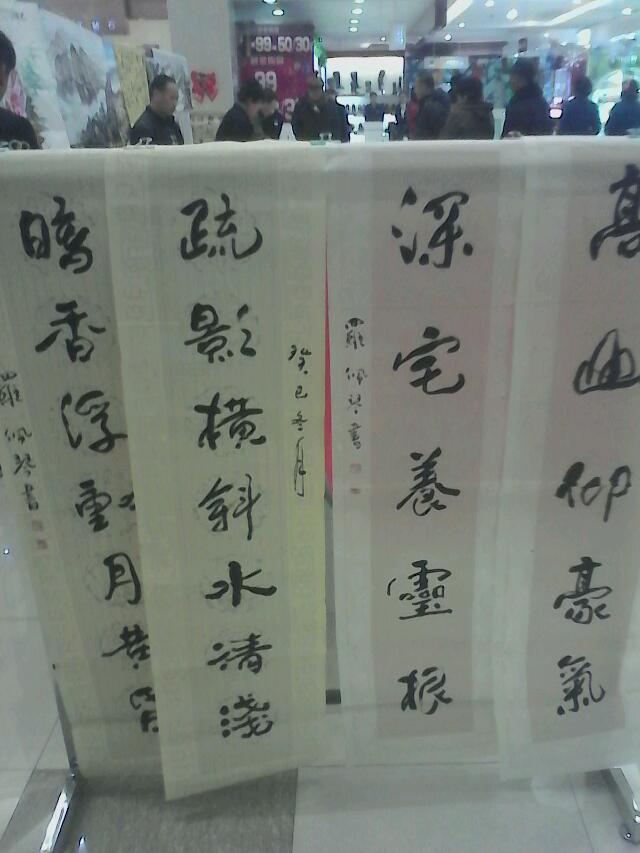 高岫仰豪氣
深宅養靈根
羅佩琴書
癸巳冬月
疏影橫斜水清淺
暗香浮動月黃昏
羅佩琴書
99